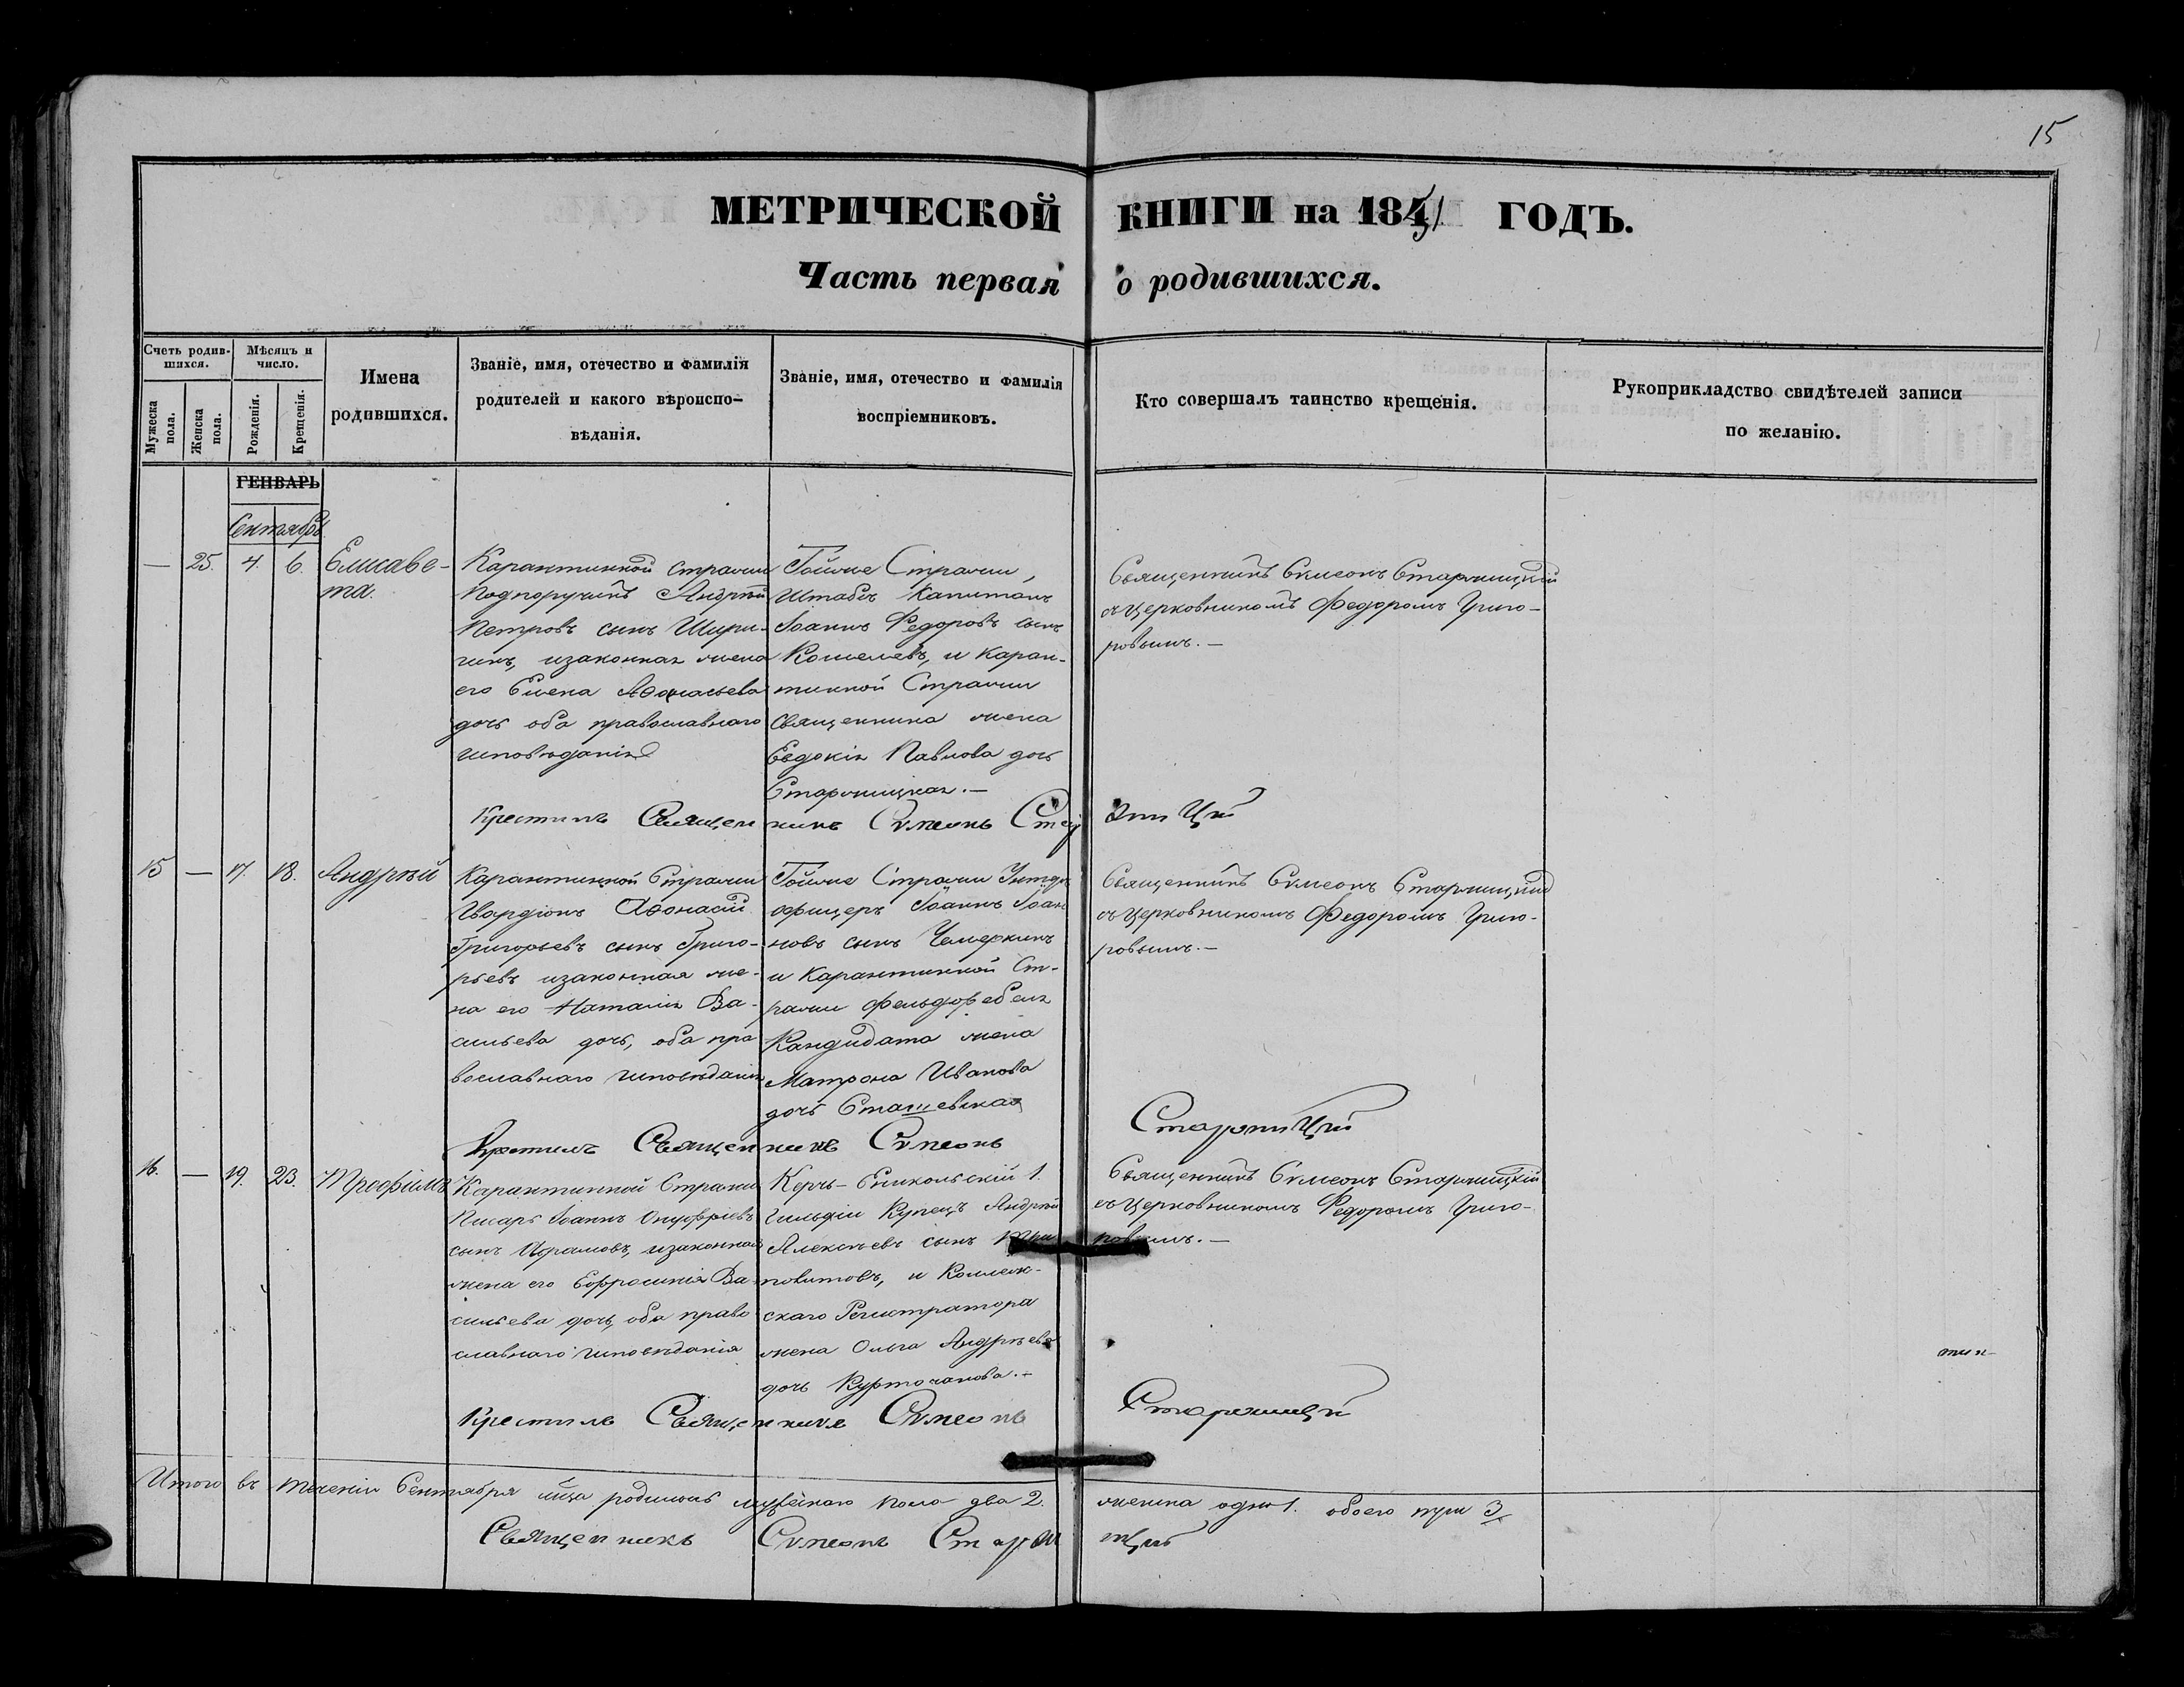 15
МЕТРИЧЕСКОЙ КНИГИ на 1851 ГОДЪ.
Часть первая о родившихся.
Счетъ родив-
шихся.
Мужеска пола.
Женска пола.
Мѣсяцъ и
число.
Рожденія.
Крещенія.
Имена
родившихся.
Званіе, имя, отечество и фамилія
родителей и какого вѣроиспо-
вѣданія.
Званіе, имя, отечество и фамилія
воспріемниковъ.
Кто совершалъ таинство крещенія.
Рукоприкладство свидѣтелей записи
по желанію.
ГЕНВАРЬ
Сентябрь
— 25. 4. 6.
Елисаве-
та.
Карантинной стражи
подпоручикъ Андрей
Петровъ сынъ Шири-
гинъ, изаконная жена
его Елена Афонасьева
дочь оба православнаго
исповѣданія
Тойже Стражи,
Штабсъ Капитанъ
Іоаннъ Федоровъ сынъ
Кошелевъ, и Каран-
тинной Стражи
священника жена
Евдокія Павлова дочь
Старжицкая.—
Священникъ Сѵмеонъ Старжицкій
съ церковникомъ Федоромъ Григо-
ровымъ.—
Крестилъ Священникъ Сѵмеонъ Старжицкій
15 — 17. 18. Андрей
Карантинной Стражи
Гвардіонъ Афонасій
Григорьевъ сынъ Григо-
рьевъ изаконная же-
на его Наталія Ва-
сильева дочь, оба пра
вославнаго исповѣданія
Тойже Стражи Унтеръ
офицеръ Іоаннъ Іоан
новъ сынъ Чемеркинъ
и Карантинной Ст-
ражи фельдфебеля
Кандидата жена
Матрона Иванова
дочь Сташевская
Священникъ Сѵмеонъ Старжицкій
съ церковникомъ Федоромъ Григо-
ровымъ.—
Крестилъ Священникъ Сѵмеонъ Старжицкій
16. — 19. 23. Трофимъ
Карантинной Стражи
Писарь Іоаннъ Онуфріевъ
сынъ Абрамовъ, изаконная
жена его Ефросинія Ва-
сильева дочь, оба право
славнаго исповѣданія
Керчь-Еникольскій 1.
гильдіи Купецъ Андрей
Алексѣевъ сынъ
повитовъ, и Коллеж-
скаго Регистратора
жена Ольга Андрѣева
дочь Куртоганова.—
Священникъ Сѵмеонъ Старжицкій
съ церковникомъ Федоромъ Григо-
ровымъ.—
Крестилъ Священникъ Сѵмеонъ Старжицкій
Итого въ теченіи Сентября мѣсца родилось мужескаго пола два 2. женска одно 1. обоего три 3
Священникъ Сѵмеонъ Старжицкій